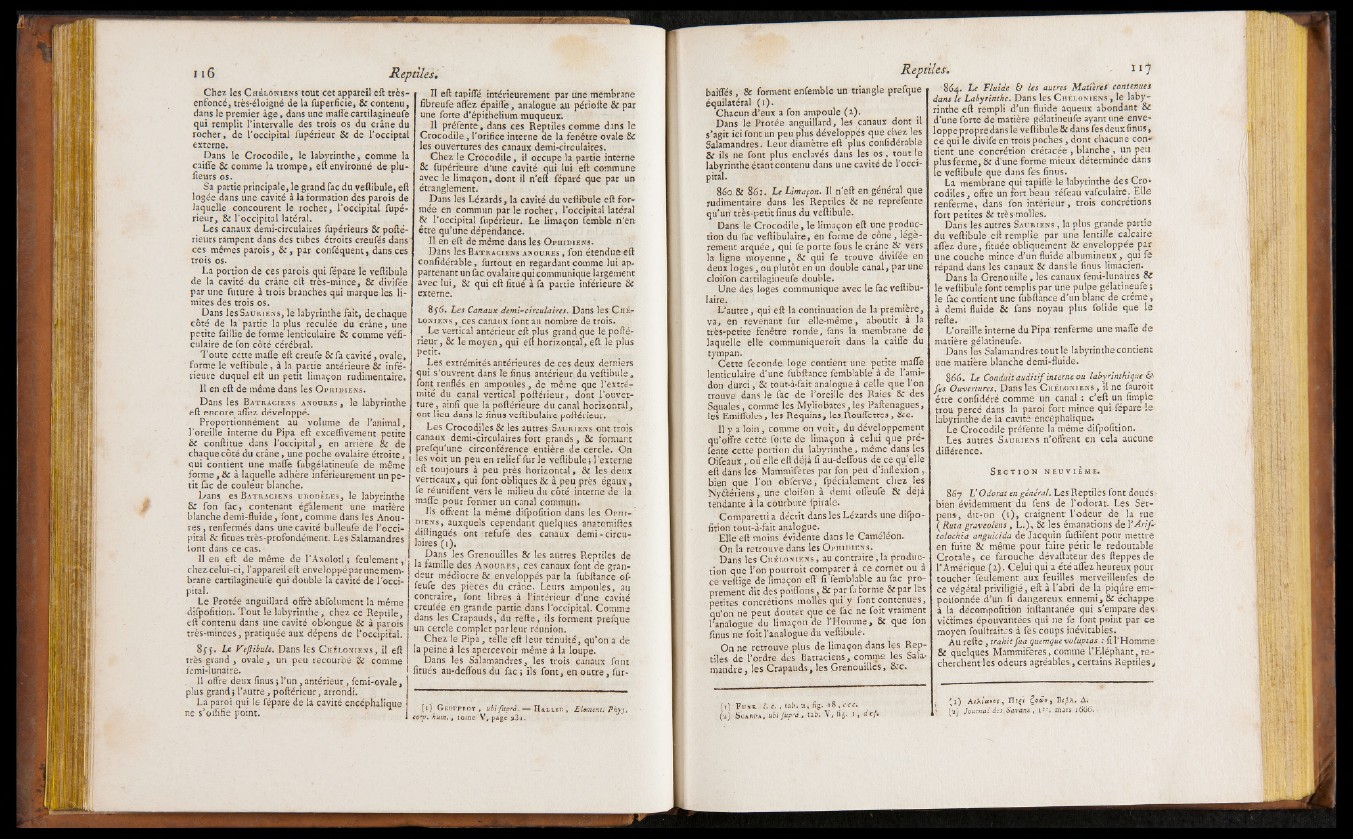 116 Reptiles.
Chez les CHÉLONIENS tout cet appareil eſt très-
enfoncé, très-éloigné de la ſuperficie, & contenu,
dans le premier âge, dans une maſſe cartilagineuſe
qui remplit l'intervalle des trois os du crâne du
rocher, de l'occipital ſupérieur & de l'occipital
externe.
Dans le Crocodile, le labyrinthe, comme la
caiſſe & comme la trompe, eſt environné de plu-
ſieurs os.
Sa partie principale, le grand ſac du veſtibule, eſt
logée dans une cavité à la formation des parois de
laquelle concourent le rocher, l'occipital ſupé-
rieur, & l'occipital latéral.
Les canaux demi-circulaires ſupérieurs & poſté-
rieurs rampent dans des tubes étroits creuſés dans
ces mêmes parois, &, par conſéquent, dans ces
trois os.
La portion de ces parois qui ſépare le veſtibule
de la cavité du crâne eſt très-mince, & diviſée
par une ſuture à trois branches qui marque les li-
mites des trois os.
Dans les SAURIENS, le labyrinthe fait, de chaque
côté de la partie la plus reculée du crâne, une
petite ſaillie de forme lenticulaire & comme véſi-
culaire de ſon côté cérébral.
Toute cette maſſe eſt creuſe & ſa cavité, ovale,
forme le veſtibule, à la partie antérieure & infé-
rieure duquel eſt un petit limaçon rudimentaire.
Il en eſt de même dans les OPHIDIENS.
Dans les BATRACIENS ANOURES, le labyrinthe
eſt encore aſſez développé.
Proportionnément au volume de l'animal,
l'oreille interne du Pipa eſt exceſſivement petite
& conſtitue dans l'occipital, en arrière & de
chaque côté du crâne, une poche ovalaire étroite,
qui contient une maſſe ſubgélatineuſe de même
forme, & à laquelle adhère inférieurement un pe-
tit ſac de couleur blanche.
Dans les BATRACIENS URODÈLES, le labyrinthe
& ſon ſac, contenant également une matière
blanche demi-fluide, ſont, comme dans les Anou-
res, renfermés dans une cavité bulleuſe de l'occi-
pital & ſitués très-profondément. Les Salamandres
ſont dans ce cas.
Il en eſt de même de l'Axolotl; ſeulement,
chez celui-ci, l'appareil eſt enveloppé par une mem-
brane cartilagineuſe qui double la cavité de l'occi-
pital.
Le Protée anguillard offre abſolument la même
diſpoſition. Tout le labyrinthe, chez ce Reptile,
eſt contenu dans une cavité oblongue & à parois
très-minces, pratiquée aux dépens de l'occipital.
855. Le Veſtibule. Dans les CHÉLONIENS, il eſt
très grand, ovale, un peu recourbé & comme
ſemi-lunaire.
Il offre deux ſinus; l'un, antérieur, ſemi-ovale,
plus grand; l'autre, poſtérieur, arrondi.
La paroi qui le ſépare de la cavité encéphalique
ne s'oſſifie point.
Il eſt tapiſſé intérieurement par une membrane
fibreuſe aſſez épaiſſe, analogue au périoſte & par
une ſorte d'épithelium muqueux.
Il préſente, dans ces Reptiles comme dans le
Crocodile, l'orifice interne de la fenêtre ovale &
les ouvertures des canaux demi-circulaires.
Chez le Crocodile, il occupe la partie interne
& ſupérieure d'une cavité qui lui eſt commune
avec le limaçon, dont il n'eſt ſéparé que par un
étranglement.
Dans les Lézards, la cavité du veſtibule eſt for-
mée en commun par le rocher, l'occipital latéral
& l'occipital ſupérieur. Le limaçon ſemble n'en
être qu'une dépendance.
Il en eſt de même dans les OPHIDIENS.
Dans les BATRACIENS ANOURES, ſon étendue eſt
conſidérable, ſurtout en regardant comme lui ap-
partenant un ſac ovalaire qui communique largement
avec lui, & qui eſt ſitué à ſa partie inférieure &
externe.
856. Les Canaux demi-circulaires. Dans les CHÉ-
LONIENS, ces canaux ſont au nombre de trois.
Le vertical antérieur eſt plus grand que le poſté-
rieur, & le moyen, qui eſt horizontal, eſt le plus
petit.
Les extrémités antérieures de ces deux derniers
qui s'ouvrent dans le ſinus antérieur du veſtibule,
ſont renflés en ampoules, de même que l'extré-
mité du canal vertical poſtérieur, dont l'ouver-
ture, ainſi que la poſtérieure du canal horizontal,
ont lieu dans le ſinus veſtibulaire poſtérieur.
Les Crocodiles & les autres SAURIENS ont trois
canaux demi-circulaires fort grands, & formant
preſqu'une circonférence entière de cercle. On
les voit un peu en relief ſur le veſtibule; l'externe
eſt toujours à peu près horizontal, & les deux
verticaux, qui ſont obliques & à peu près égaux,
ſe réuniſſent vers le milieu du côté interne de la
maſſe pour former un canal commun.
Ils offrent la même diſpoſition dans les OPHI-
DIENS, auxquels cependant quelques anatomiſtes
diſtingués ont refuſé des canaux demi-circu-
laires (1).
Dans les Grenouilles & les autres Reptiles de
la famille des ANOURES, ces canaux ſont de gran-
deur médiocre & enveloppés par la ſubſtance oſ-
ſeuſe des pièces du crâne. Leurs ampoules, au
contraire, ſont libres à l'intérieur d'une cavité
creuſée en grande partie dans l'occipital. Comme
dans les Crapauds, du reſte, ils forment preſque
un cercle complet par leur réunion.
Chez le Pipa, telle eſt leur ténuité, qu'on a de
la peine à les apercevoir même à la loupe.
Dans les Salamandres, les trois canaux ſont
ſitués au-deſſous du ſac; ils ſont, en outre, ſur-
(1) GEOFFROY, ubi ſuprà. — HALLER, Element. Phyſ.
corp. hum., tome V, page 281.
Reptiles. 117
baiſſés, & forment enſemble un triangle preſque
équilatéral (1).
Chacun d'eux a ſon ampoule (2).
Dans le Protée anguillard, les canaux dont il
s'agit ici ſont un peu plus développés que chez les
Salamandres. Leur diamètre eſt plus conſidérable
& ils ne ſont plus enclavés dans les os, tout le
labyrinthe étant contenu dans une cavité de l'occi-
pital.
860 & 861. Le Limaçon. Il n'eſt en général que
rudimentaire dans les Reptiles & ne repréſente
qu'un très-petit ſinus du veſtibule.
Dans le Crocodile, le limaçon eſt une produc-
tion du ſac veſtibulaire, en forme de cône, légè-
rement arquée, qui ſe porte ſous le crâne & vers
la ligne moyenne, & qui ſe trouve diviſée en
deux loges, ou plutôt en un double canal, par une
cloiſon cartilagineuſe double.
Une des loges communique avec le ſac veſtibu-
laire.
L'autre, qui eſt la continuation de la première,
va, en revenant ſur elle-même, aboutir à la
très-petite fenêtre ronde, ſans la membrane de
laquelle elle communiqueroit dans la caiſſe du
tympan.
Cette ſeconde loge contient une petite maſſe
lenticulaire d'une ſubſtance ſemblable à de l'ami-
don durci, & tout-à-fait analogue à celle que l'on
trouve dans le ſac de l'oreille des Raies & des
Squales, comme les Myliobates, les Paſtenagues,
les Emiſſoles, les Requins, les Rouſſettes, &c.
Il y a loin, comme on voit, du développement
qu'offre cette ſorte de limaçon à celui que pré-
ſente cette portion du labyrinthe, même dans les
Oiſeaux, où elle eſt déjà ſi au-deſſous de ce qu'elle
eſt dans les Mammifères par ſon peu d'inflexion,
bien que l'on obſerve, ſpécialement chez les
Nyctériens, une cloiſon à demi oſſeuſe & déjà
tendante à la courbure ſpirale.
Comparetti a décrit dans les Lézards une diſpo-
ſition tout-à-fait analogue.
Elle eſt moins évidente dans le Caméléon.
On la retrouve dans les OPHIDIENS.
Dans les CHÉLONIENS, au contraire, la produc-
tion que l'on pourroit comparer à ce cornet ou à
ce veſtige de limaçon eſt ſi ſemblable au ſac pro-
prement dit des poiſſons, & par ſa forme & par les
petites concrétions molles qui y ſont contenues,
qu'on ne peut douter que ce ſac ne ſoit vraiment
l'analogue du limaçon de l'Homme, & que ſon
ſinus ne ſoit l'analogue du veſtibule.
On ne retrouve plus de limaçon dans les Rep-
tiles de l'ordre des Batraciens, comme les Sala-
mandre, les Crapauds, les Grenouilles, &c.
(1) FUNK l. c., tab. 2, fig. 28, ccc.
(2) SCARPA, ubi ſuprà, tab. V, fig. 1, def.
864. Le Fluide & les autres Matières contenues
dans le Labyrinthe. Dans les CHÉLONIENS, le laby-
rinthe eſt rempli d'un fluide aqueux abondant &
d'une ſorte de matière gélatineuſe ayant une enve-
loppe propre dans le veſtibule & dans ſes deux ſinus,
ce qui le diviſe en trois poches, dont chacune con-
tient une concrétion crétacée, blanche, un peu
plus ferme, & d'une forme mieux déterminée dans
le veſtibule que dans ſes ſinus.
La membrane qui tapiſſe le labyrinthe des Cro-
codiles, offre un fort beau réſeau vaſculaire. Elle
renferme, dans ſon intérieur, trois concrétions
fort petites & très molles.
Dans les autres SAURIENS, la plus grande partie
du veſtibule eſt remplie par une lentille calcaire
aſſez dure, ſituée obliquement & enveloppée par
une couche mince d'un fluide albumineux, qui ſe
répand dans les canaux & dans le ſinus limacien.
Dans la Grenouille, les canaux ſemi-lunaires &
le veſtibule ſont remplis par une pulpe gélatineuſe;
le ſac contient une ſubſtance d'un blanc de crême,
à demi fluide & ſans noyau plus ſolide que le
reſte.
L'oreille interne du Pipa renferme une maſſe de
matière gélatineuſe.
Dans les Salamandres tout le labyrinthe contient
une matière blanche demi-fluide.
866. Le Conduit auditif interne ou labyrinthique &
ſes Ouvertures. Dans les CHÉLONIENS, il ne ſauroit
être conſidéré comme un canal: c'eſt un ſimple
trou percé dans la paroi fort mince qui ſépare le
labyrinthe de la cavité encéphalique.
Le Crocodile préſente la même diſpoſition.
Les autres SAURIENS n'offrent en cela aucune
différence.
SECTION NEUVIÈME.
867 L'Odorat en général. Les Reptiles ſont doués
bien évidemment du ſens de l'odorat. Les Ser-
pens, dit-on (1), craignent l'odeur de la rue
(Ruta graveolens, L.), & les émanations de l'Ariſ-
tolochia anguicida de Jacquin ſuffiſent pour mettre
en fuite & même pour faire périr le redoutable
Crotale, ce farouche dévaſtateur des ſteppes de
l'Amérique (2). Celui qui a été aſſez heureux pour
toucher ſeulement aux feuilles merveilleuſes de
ce végétal privilégié, eſt à l'abri de la piqûre em-
poiſonnée d'un ſi dangereux ennemi, & échappe
à la décompoſition inſtantanée qui s'empare des
victimes épouvantées qui ne ſe ſont point par ce
moyen ſouſtraites à ſes coups inévitables.
Au reſte, trahit ſua quemque voluptas: ſi l'Homme
& quelques Mammifères, comme l'Éléphant, re-
cherchent les odeurs agréables, certains Reptiles,
(2) Journal des Savans, 1er. mars 1666.